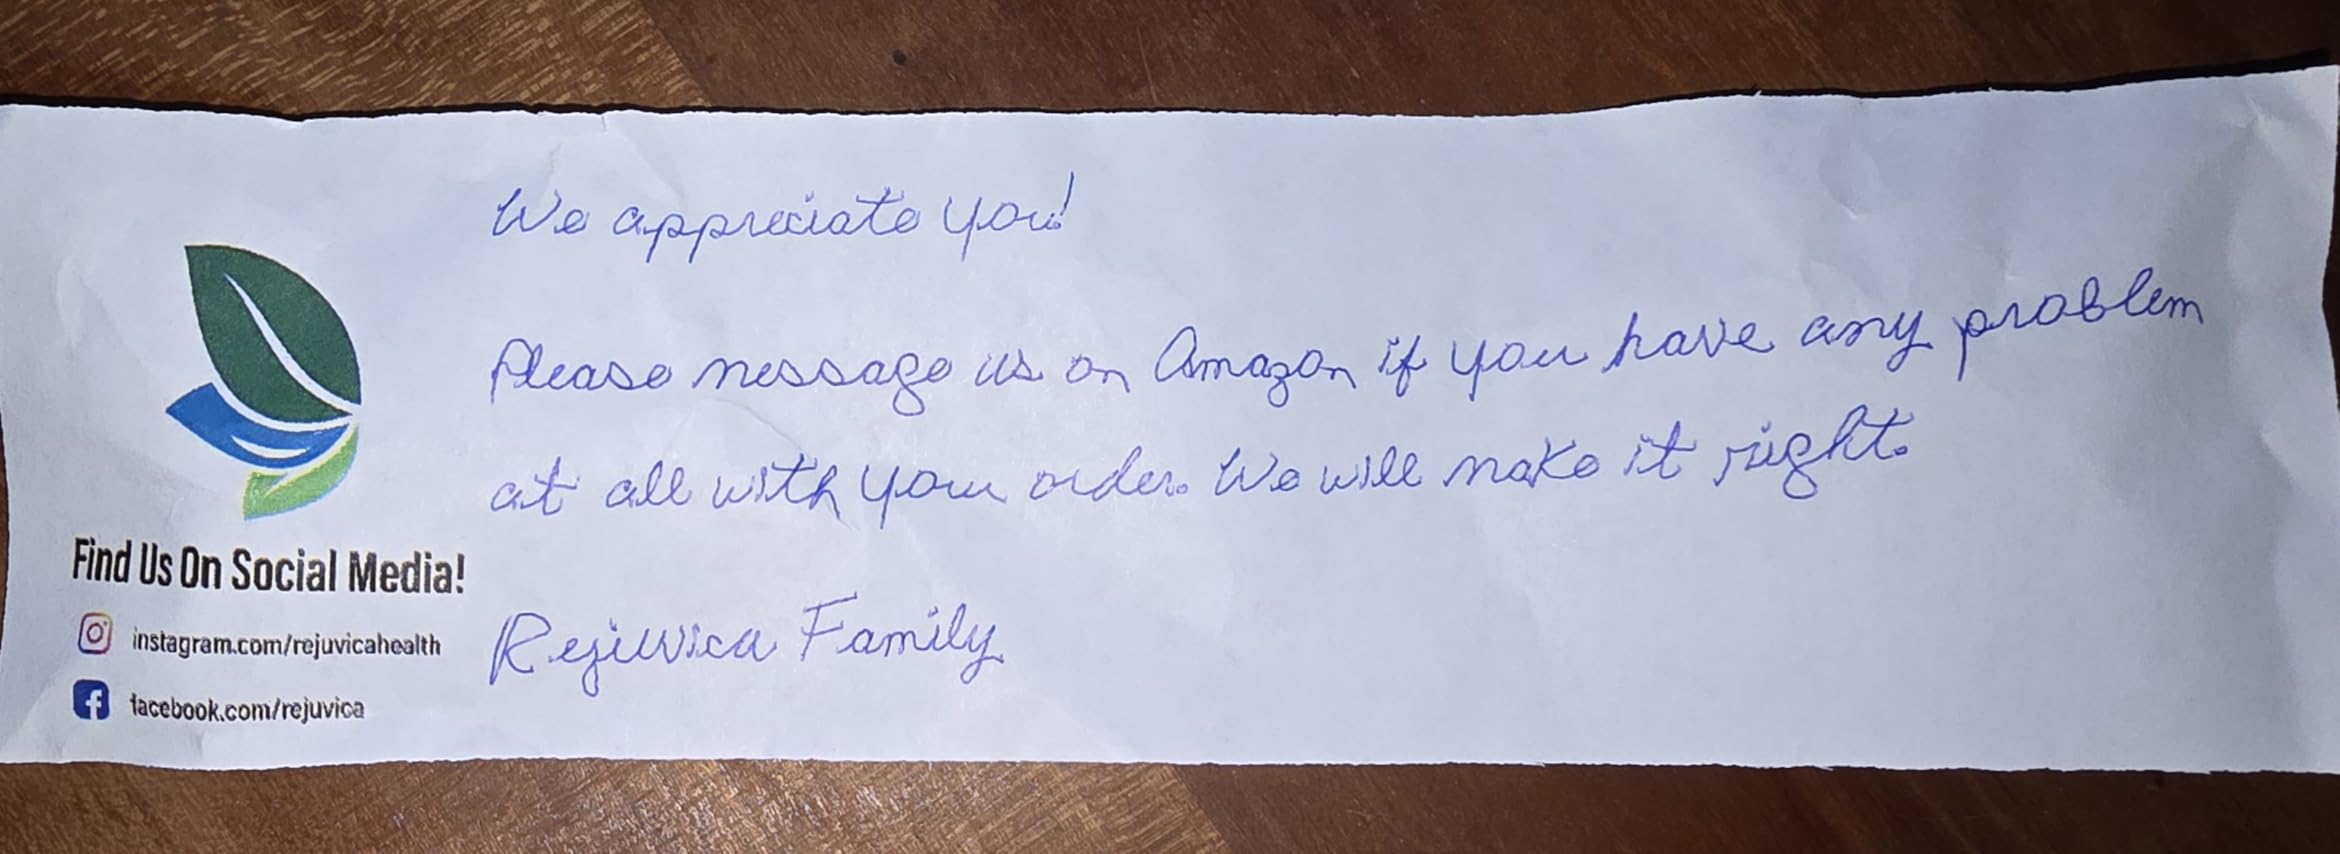 We appreciate you!
Please message us on Amazon if you have any problem
at all with your order. We will make it right.
Rejuvica Family
Find Us On Social Media!
instagram.com/rejuvicahealth
facebook.com/rejuvica